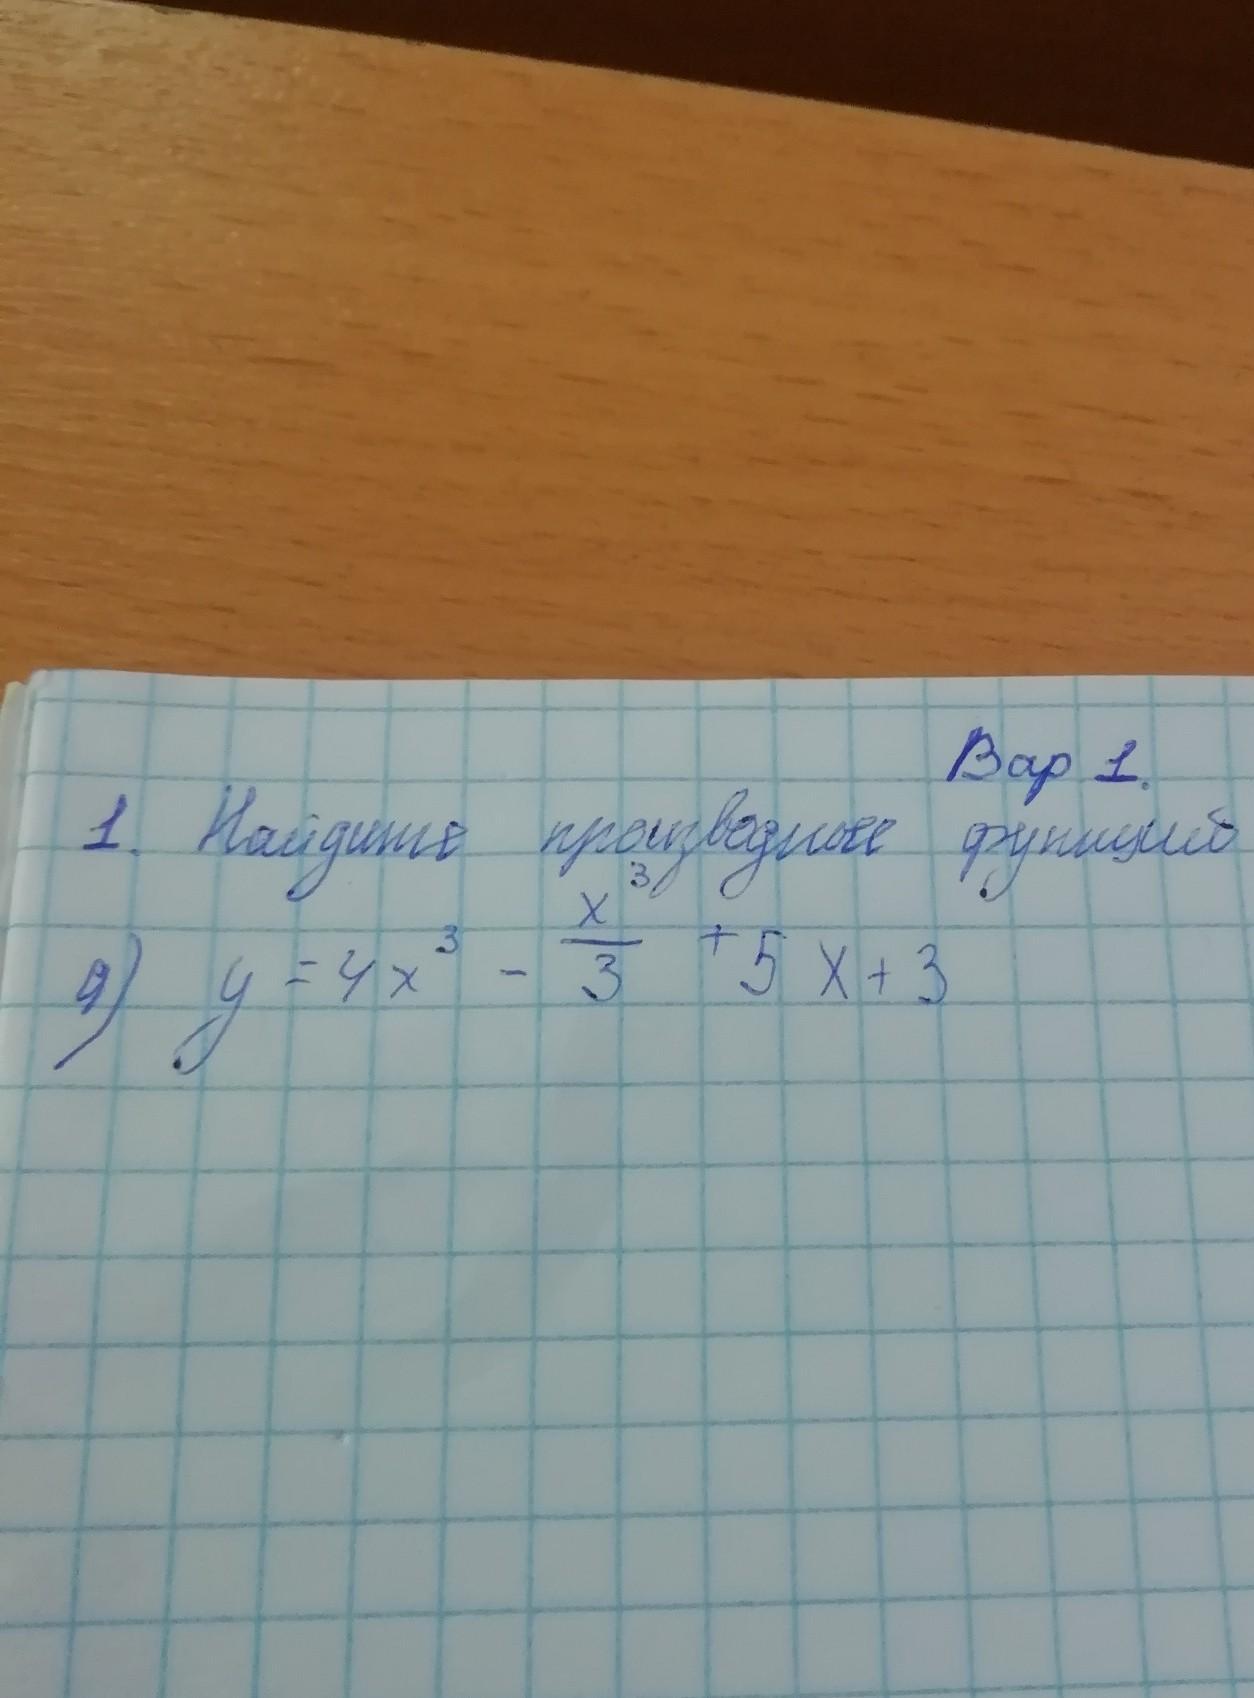 Вар 1.
1. Найдите производные функций
а) y = 4x³ - x³/3 + 5x + 3